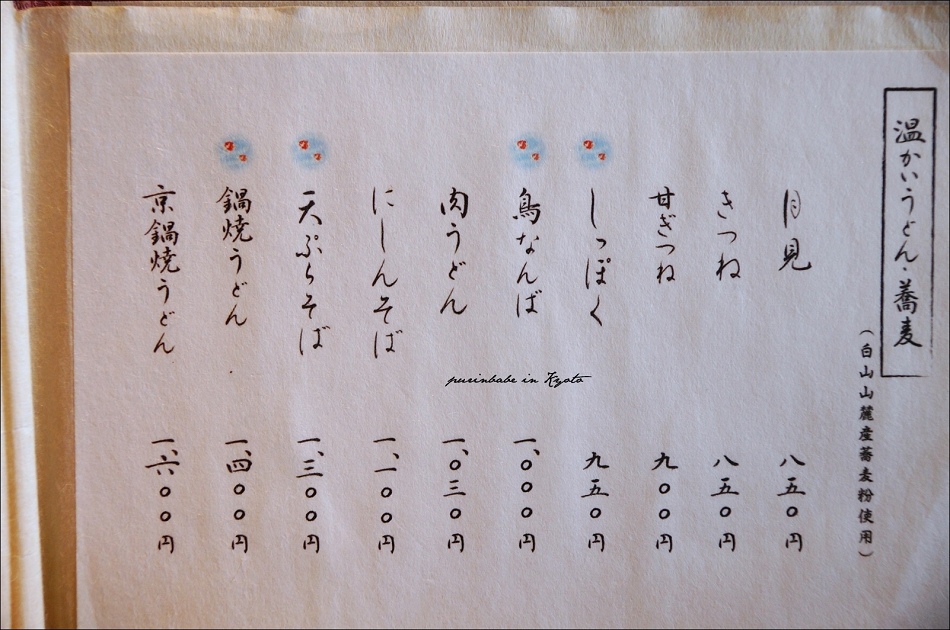 温かいうどん・蕎麦
（白山山麓産蕎麦粉使用）
月見 八五〇円
きつね 八五〇円
甘ぎつね 九〇〇円
しっぽく 九五〇円
鳥なんば 一、〇〇〇円
肉うどん 一、〇三〇円
にしんそば 一、一〇〇円
天ぷらそば 一、三〇〇円
鍋焼うどん 一、四〇〇円
京鍋焼うどん 一、六〇〇円
purinbabe in Kyoto